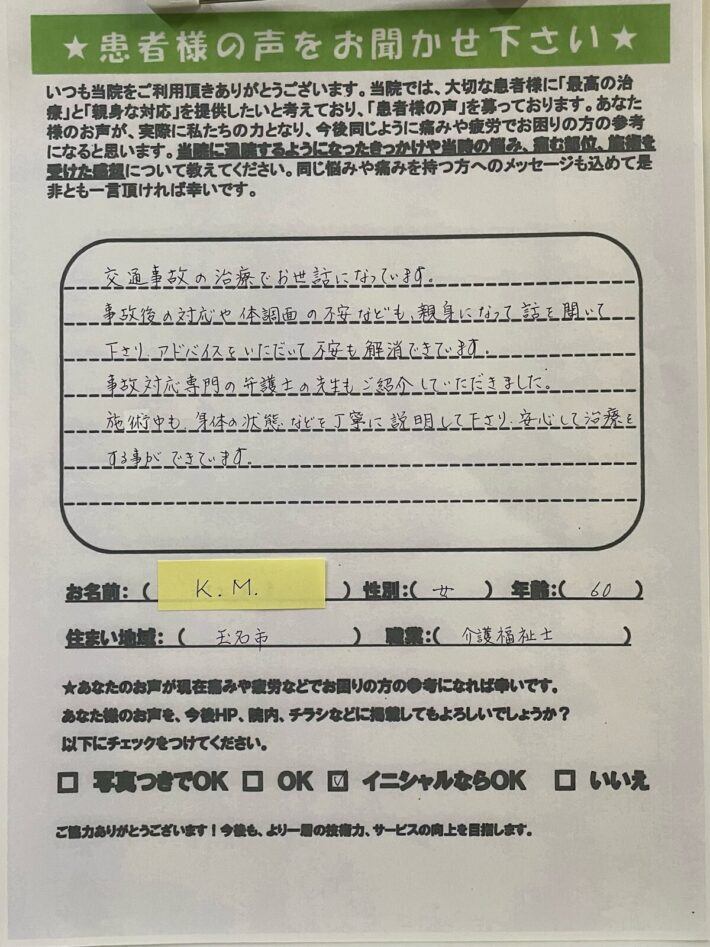 ★患者様の声をお聞かせ下さい★
いつも当院をご利用頂きありがとうございます。当院では、大切な患者様に「最高の治
療」と「親身な対応」を提供したいと考えており、「患者様の声」を募っております。あなた
様のお声が、実際に私たちの力となり、今後同じように痛みや疲労でお困りの方の参考
になると思います。当院に通院するようになったきっかけや当時の悩み、痛む部位、施術を
受けた感想について教えてください。同じ悩みや痛みを持つ方へのメッセージも込めて是
非とも一言頂ければ幸いです。
交通事故の治療でお世話になっています。
事故後の対応や体調面の不安なども、親身になって話を聞いて
下さり、アドバイスをいただいて不安も解消できています。
事故対応専門の弁護士の先生もご紹介していただきました。
施術中も、身体の状態などを丁寧に説明して下さり、安心して治療を
する事ができています。
お名前:( K.M. ) 性別:( 女 ) 年齢:( 60 )
住まい地域:( 玉名市 ) 職業:( 介護福祉士 )
★あなたのお声が現在痛みや疲労などでお困りの方の参考になれば幸いです。
あなた様のお声を、今後HP、院内、チラシなどに掲載してもよろしいでしょうか?
以下にチェックをつけてください。
□ 写真つきでOK □ OK ☑ イニシャルならOK □ いいえ
ご協力ありがとうございます!今後も、より一層の技術力、サービスの向上を目指します。